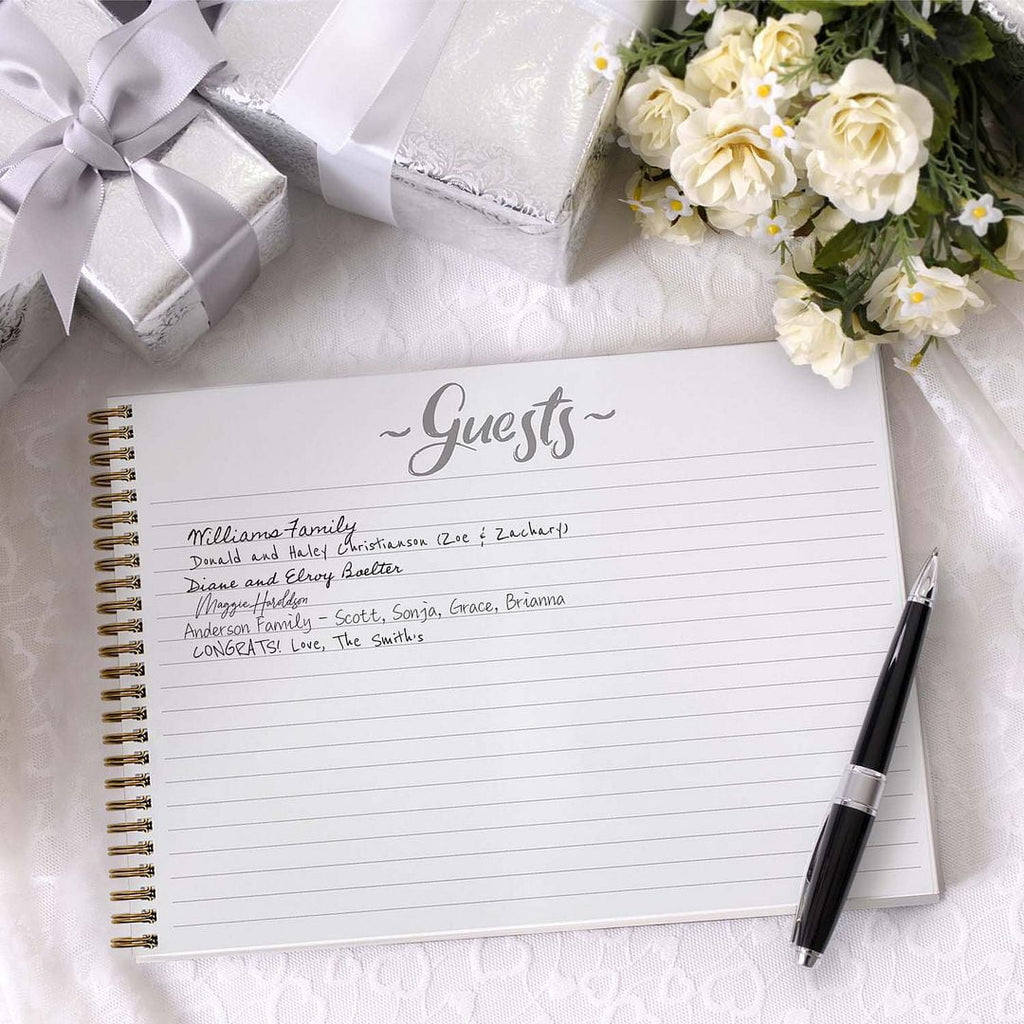 ~Guests~
Williams Family
Donald and Haley Christianson (Zoe & Zachary)
Diane and Elroy Boelter
Maggie Haroldson
Anderson Family - Scott, Sonja, Grace, Brianna
CONGRATS! Love, The Smith's